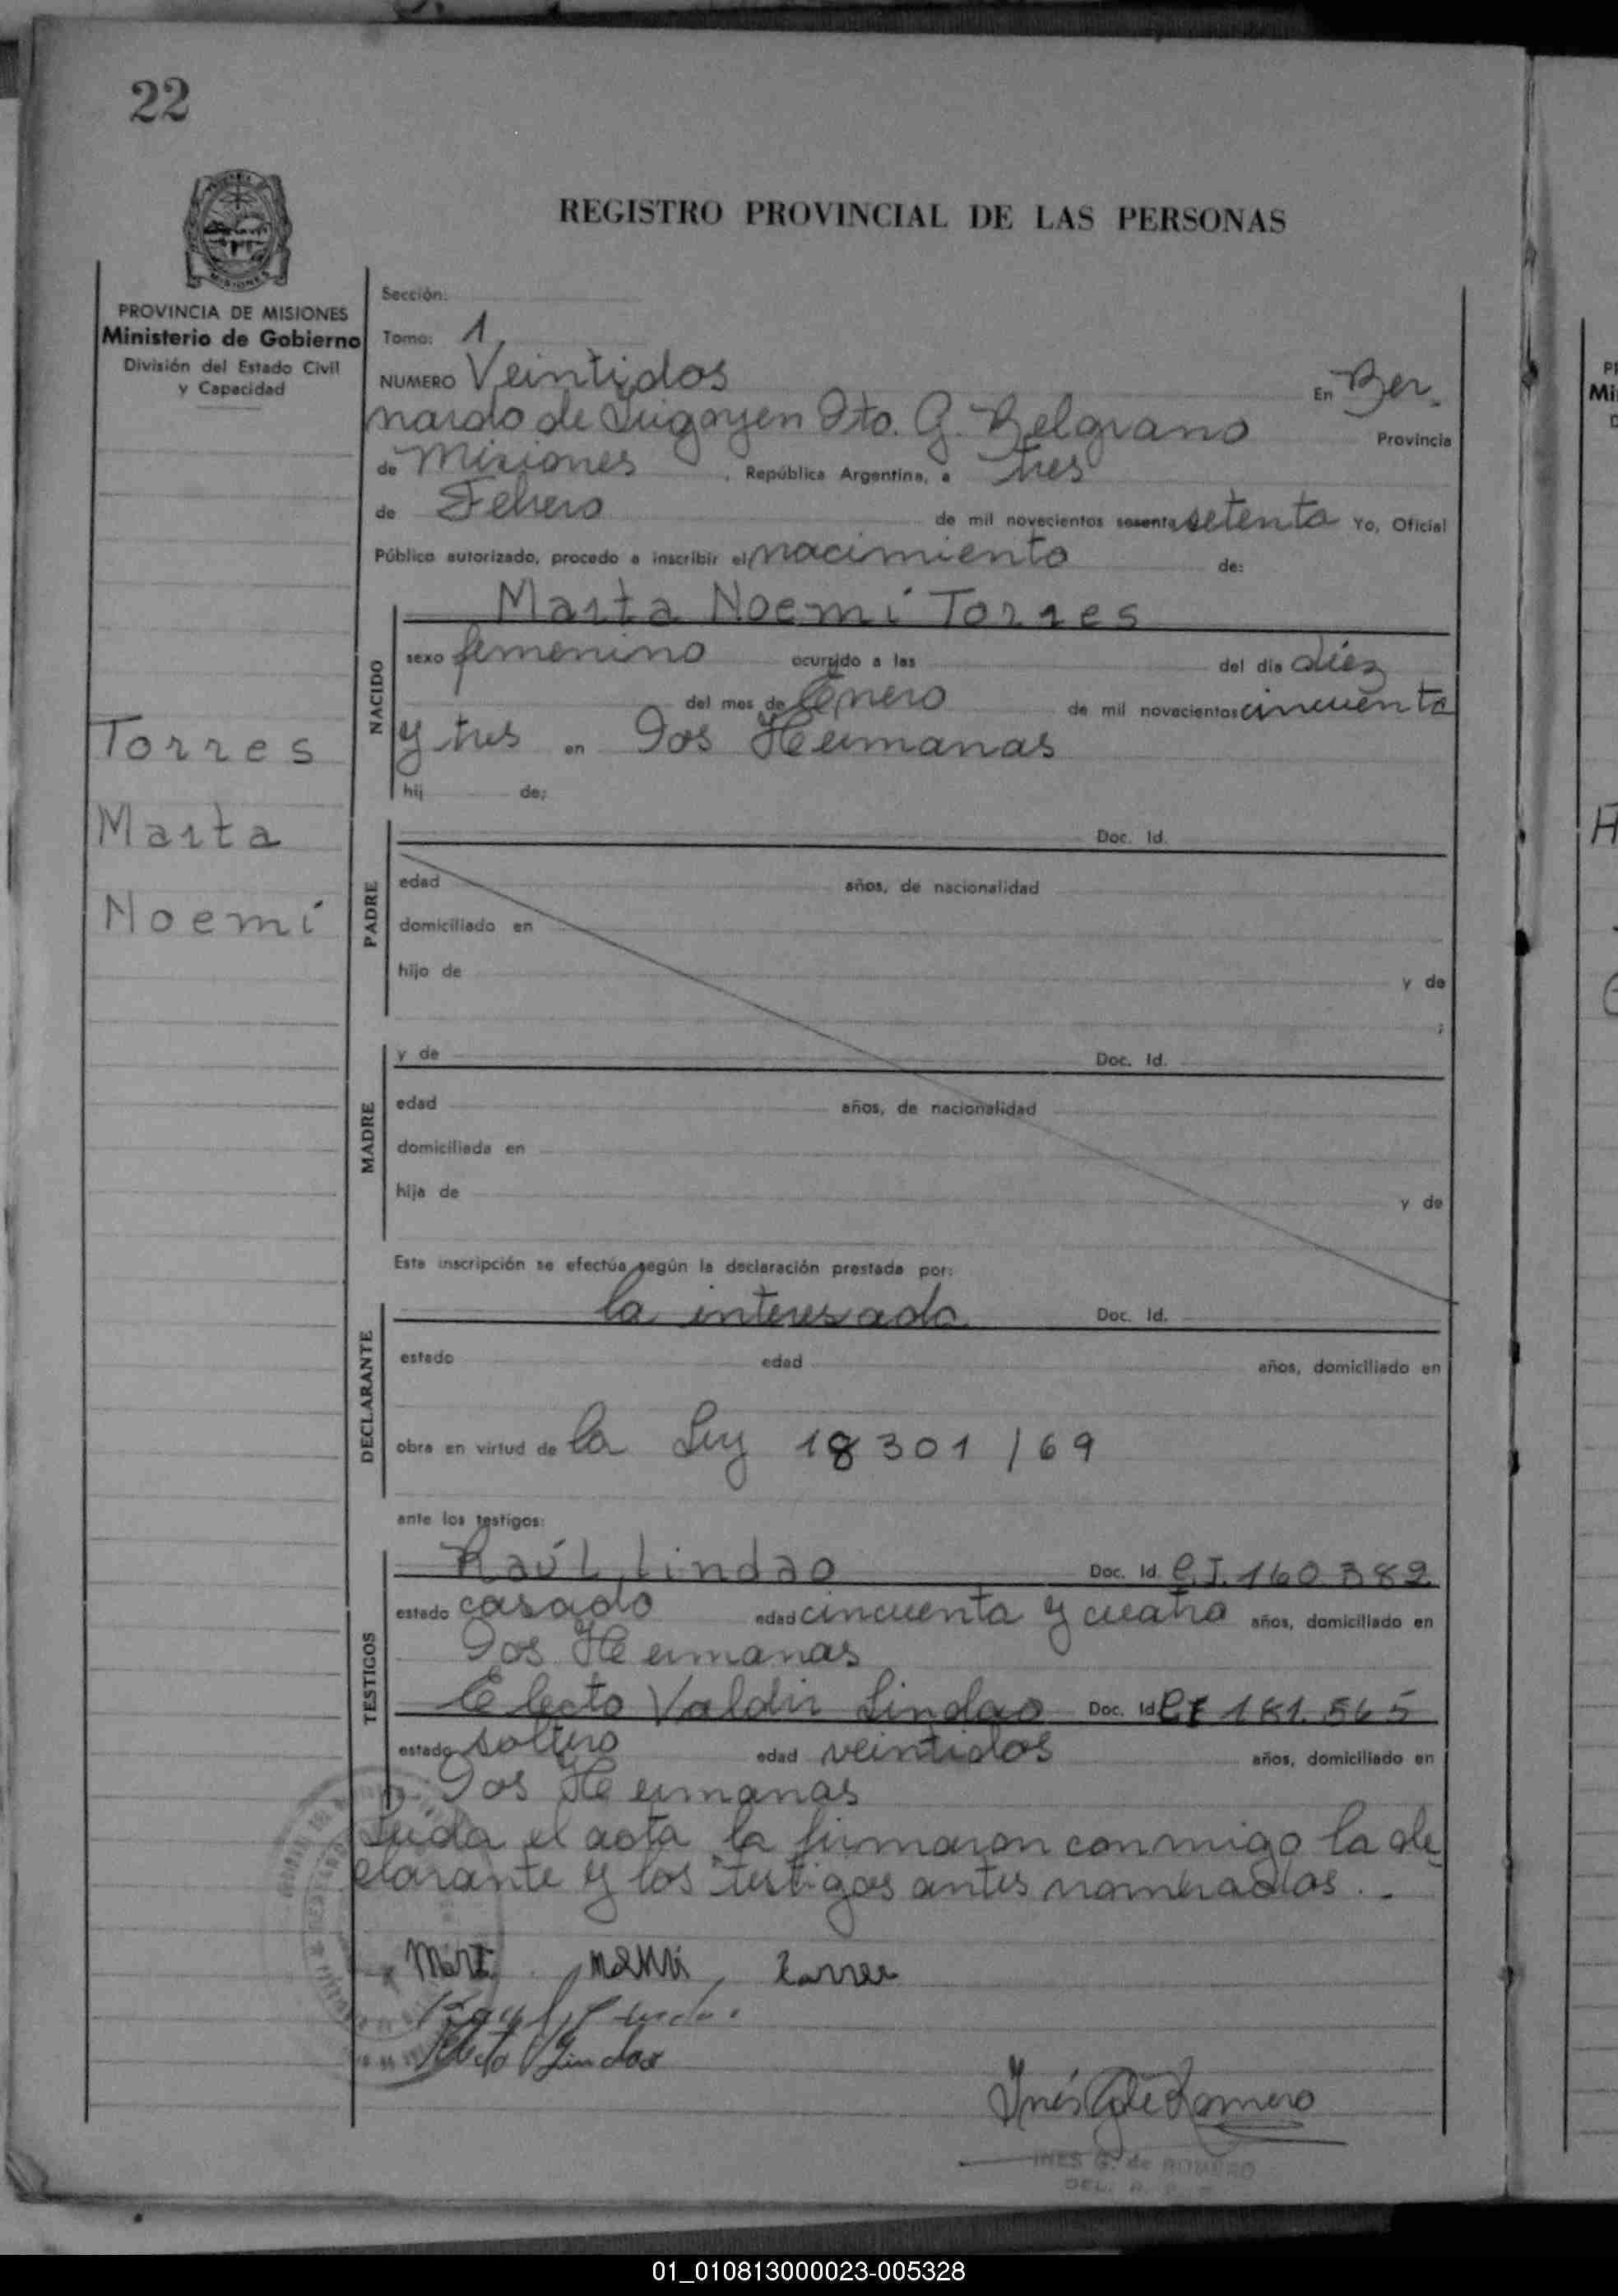 22
REGISTRO PROVINCIAL DE LAS PERSONAS
MISIONES
PROVINCIA DE MISIONES
Ministerio de Gobierno
División del Estado Civil
y Capacidad
Sección:
Tomo: 1
NUMERO Veintidos En Ber-
nardo de Irigoyen Dto. G. Belgrano Provincia
de Misiones, República Argentina, a tres
de Febrero de mil novecientos sesenta setenta Yo, Oficial
Público autorizado, procedo a inscribir el nacimiento de:
Marta Noemí Torres
NACIDO
sexo femenino ocurrido a las del día diez
del mes de Enero de mil novecientos cincuenta
y tres en Dos Hermanas
hij de:
Torres
Marta
Noemí
PADRE
Doc. Id.
edad años, de nacionalidad
domiciliado en
hijo de y de
;
MADRE
y de Doc. Id.
edad años, de nacionalidad
domiciliada en
hija de y de
Esta inscripción se efectúa según la declaración prestada por:
DECLARANTE
la interesada Doc. Id.
estado edad años, domiciliado en
obra en virtud de la Ley 18301/69
ante los testigos:
TESTIGOS
Raúl Lindao Doc. Id. C.I. 160.382
estado casado edad cincuenta y cuatro años, domiciliado en
Dos Hermanas
Electo Valdir Lindao Doc. Id. CI 181.565
estado soltero edad veintidos años, domiciliado en
Dos Hermanas
Leida el acta la firmaron conmigo la de-
clarante y los testigos antes nombrados.-
Inés G de Romero
INES G. de ROMERO
01_010813000023-005328